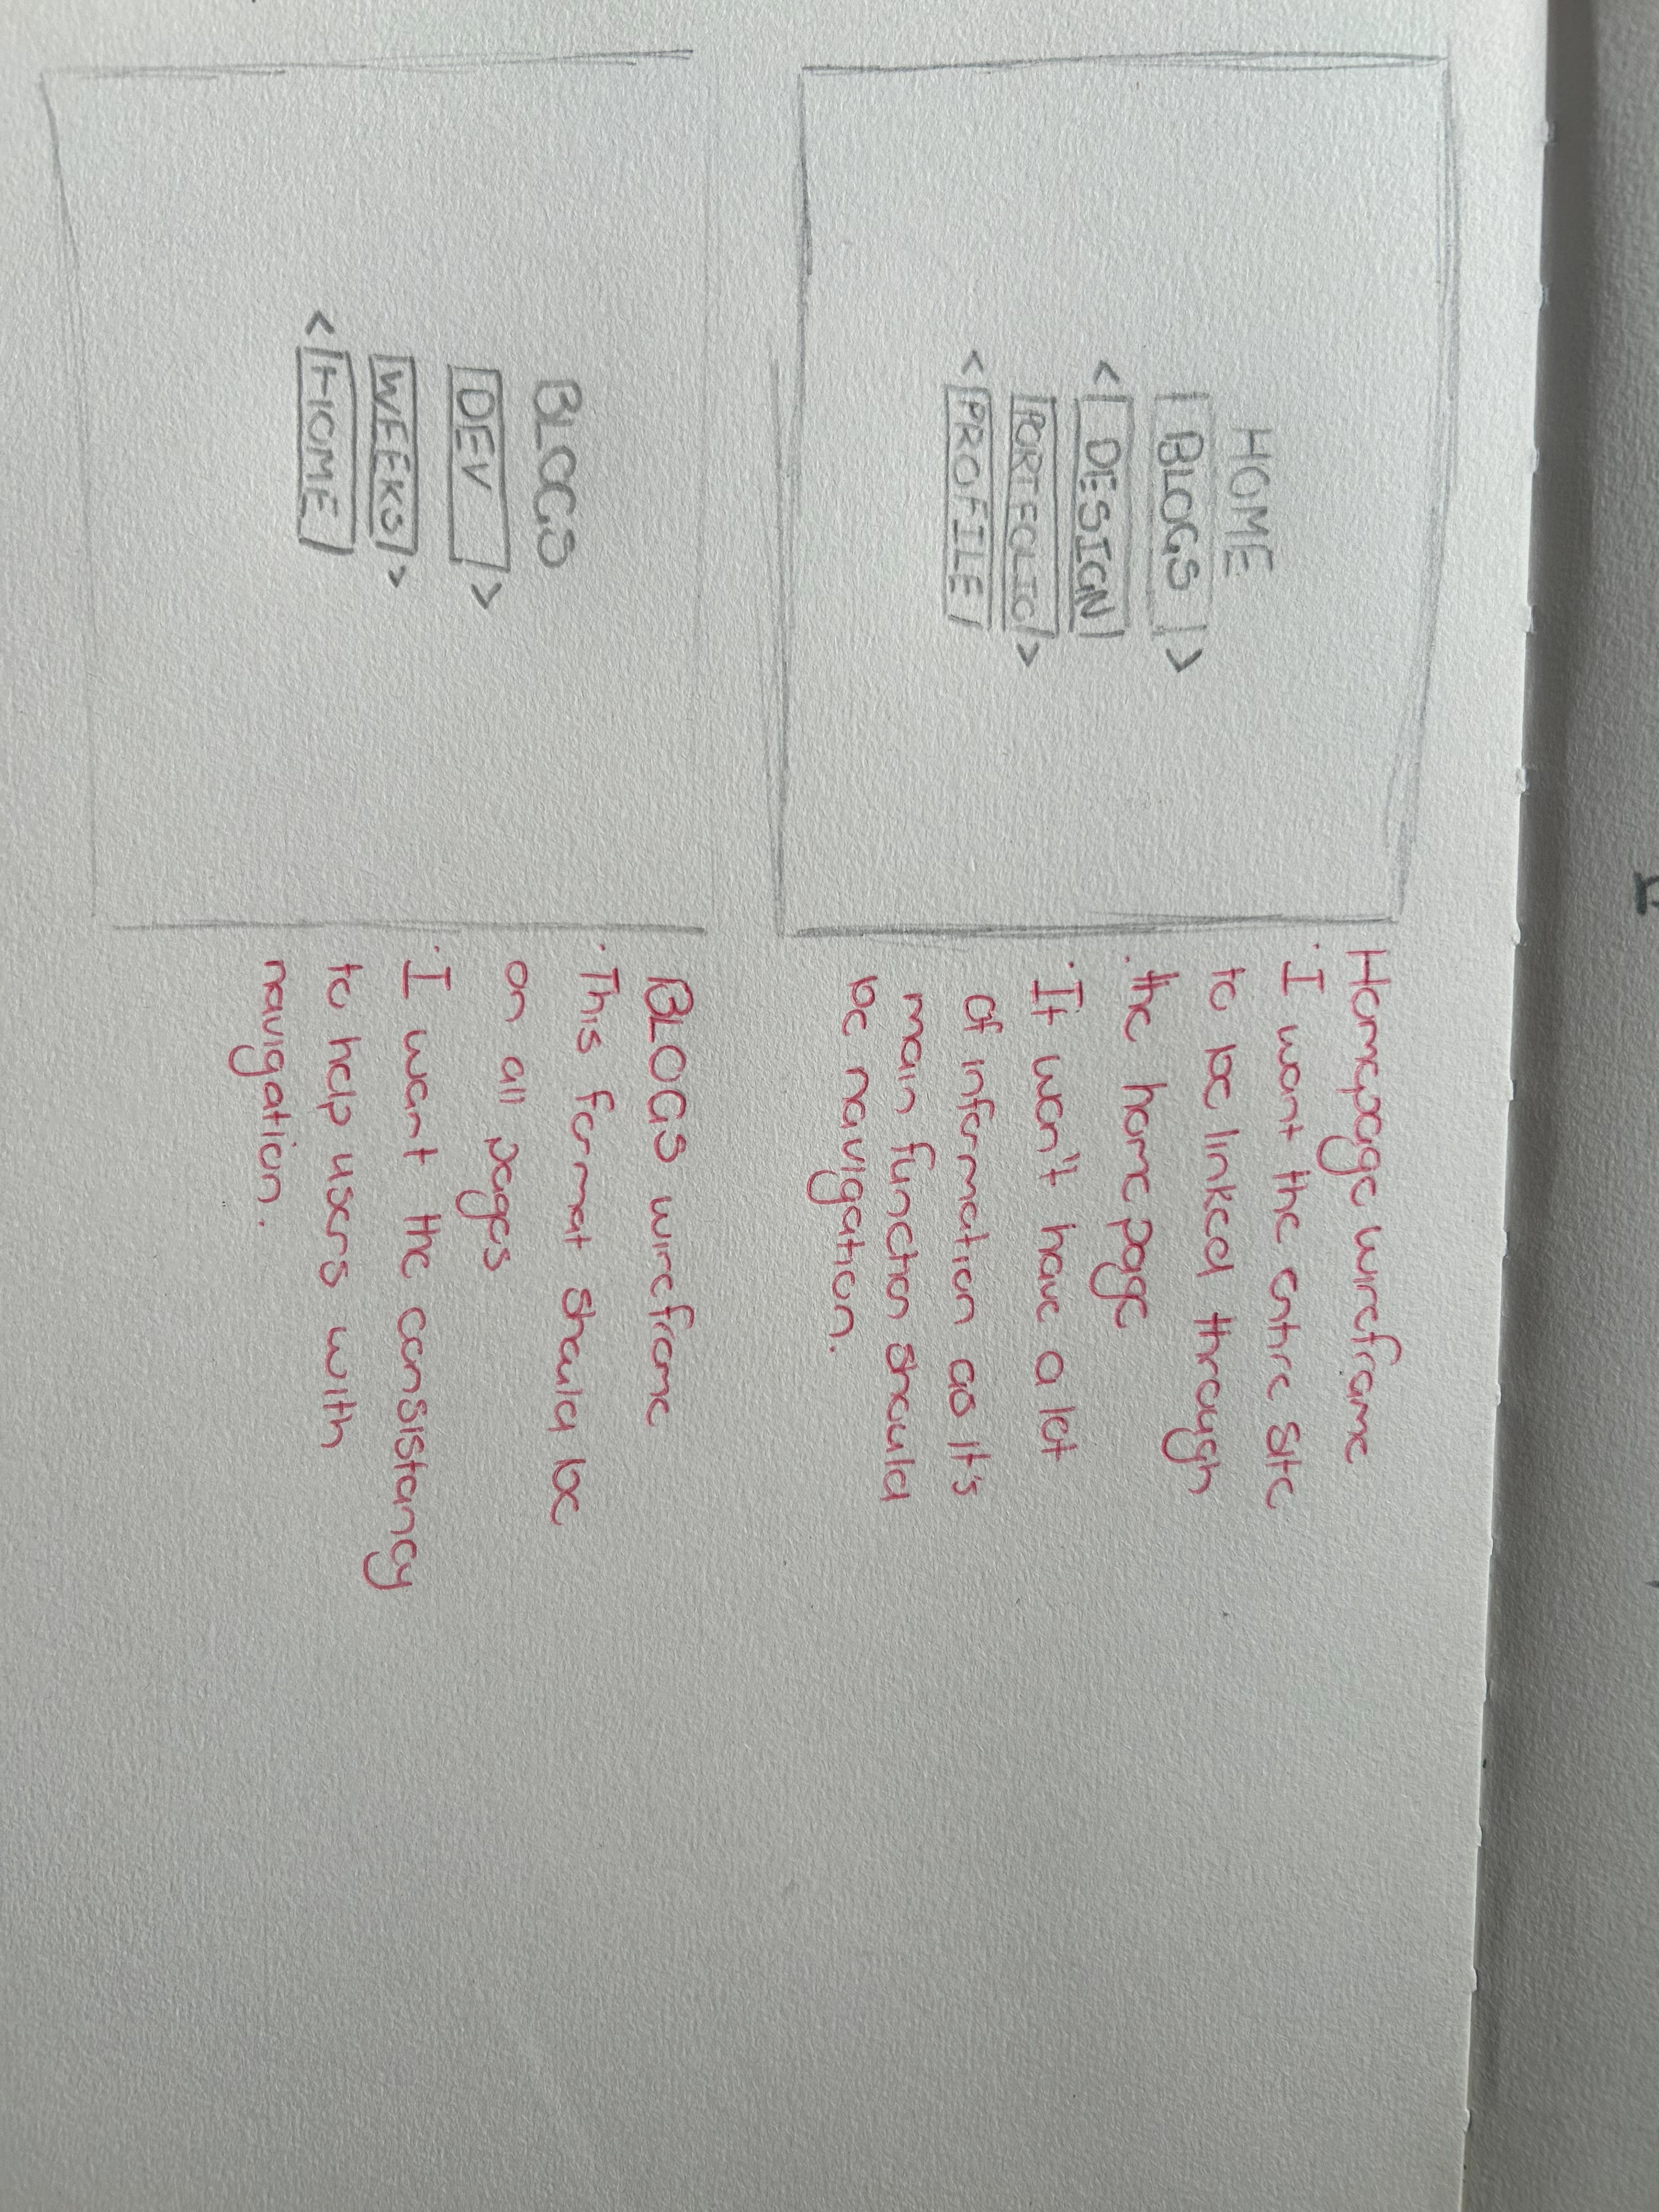 HOME
BLOGS >
< DESIGN
PORTFOLIO >
< PROFILE
Homepage wireframe
· I want the entire site
to be linked through
· the home page
· It won't have a lot
of information as it's
main function should
be navigation.
BLOGS
DEV >
WEEKS >
< HOME
BLOGS wireframe
· This format should be
on all pages
· I want the consistancy
to help users with
navigation.